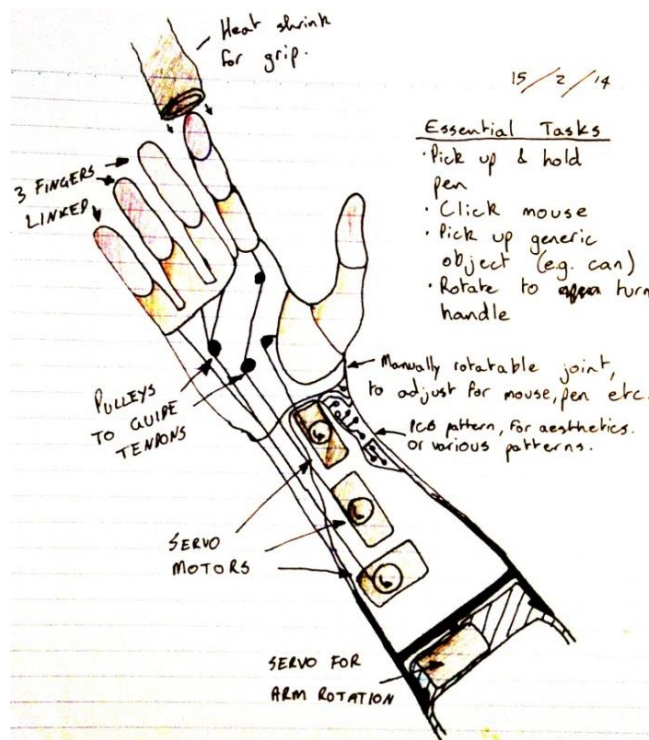 Heat shrink
for grip.
15/2/14
Essential Tasks
· Pick up & hold
pen
· Click mouse
· Pick up generic
object (e.g. can)
· Rotate to turn
handle
3 FINGERS
LINKED
Manually rotatable joint,
to adjust for mouse, pen etc.
PULLEYS
TO GUIDE
TENDONS
PCB pattern, for aesthetics.
or various patterns.
SERVO
MOTORS
SERVO FOR
ARM ROTATION